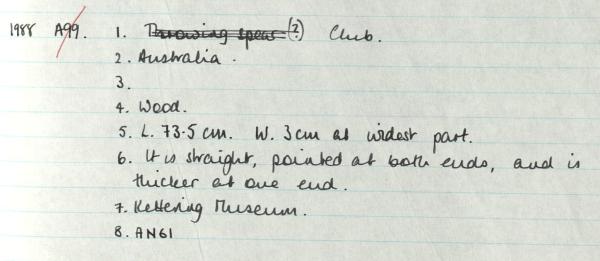 1988 A99. 1. Throwing spear (?) Club.
2. Australia.
3.
4. Wood.
5. L. 73.5 cm. W. 3cm at widest part.
6. It is straight, pointed at both ends, and is
thicker at one end.
7. Kettering Museum.
8. AN61